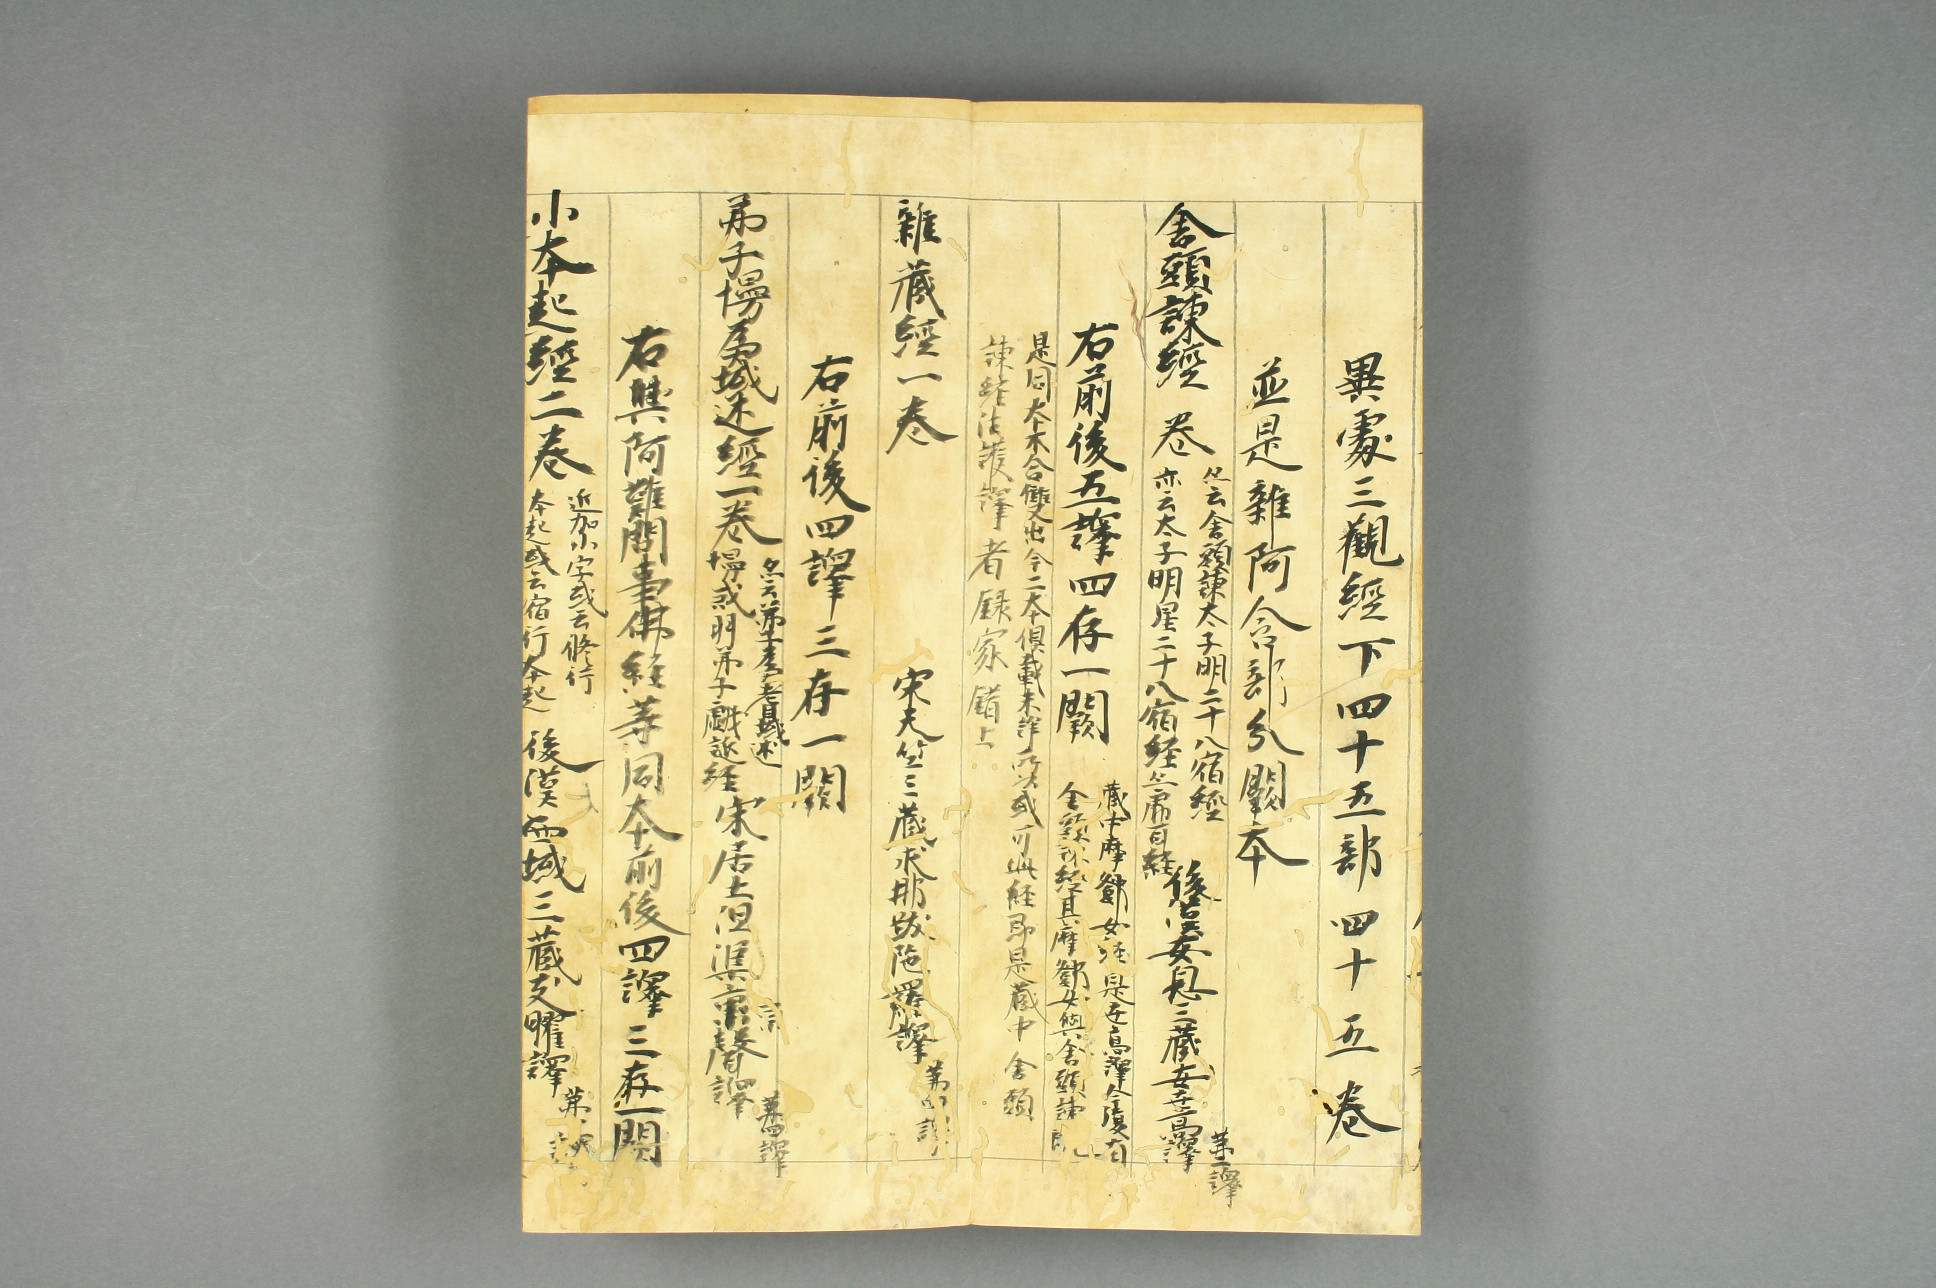 異處三觀經下四十五部四十五卷
並是雜阿含部分闕本
舍頭諫經 卷
亦云舍頭諫太子明二十八宿經
亦云太子明星二十八宿經亦虎耳経
後漢安息三藏安世高譯
第二譯
右前後五譯四存一闕
藏中摩鄧女経是世高譯今復有
舍頭諫経其摩鄧女與舍頭諫
是同本不合雙出今二本俱載未詳所以或可此経即是藏中 舍頭
諫経法護譯者録家錯上
雜藏經一卷
宋天竺三藏求那跋陀羅譯
第四譯
右前後四譯三存一闕
弟子慢為耆域述經一卷
慢或明弟子戲誕経
宋居士沮渠京聲譯
第四譯
右與阿難問事佛経等同本前後四譯三存一闕
小本起經二卷
近加小字或云修行
本起或云宿行本起
後漢西域三藏支曜譯